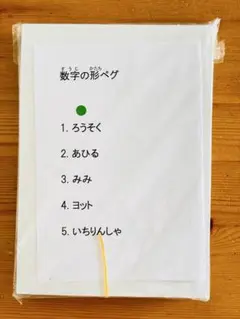 数字の形ペグ
1. ろうそく
2. あひる
3. みみ
4. ヨット
5. いちりんしゃ